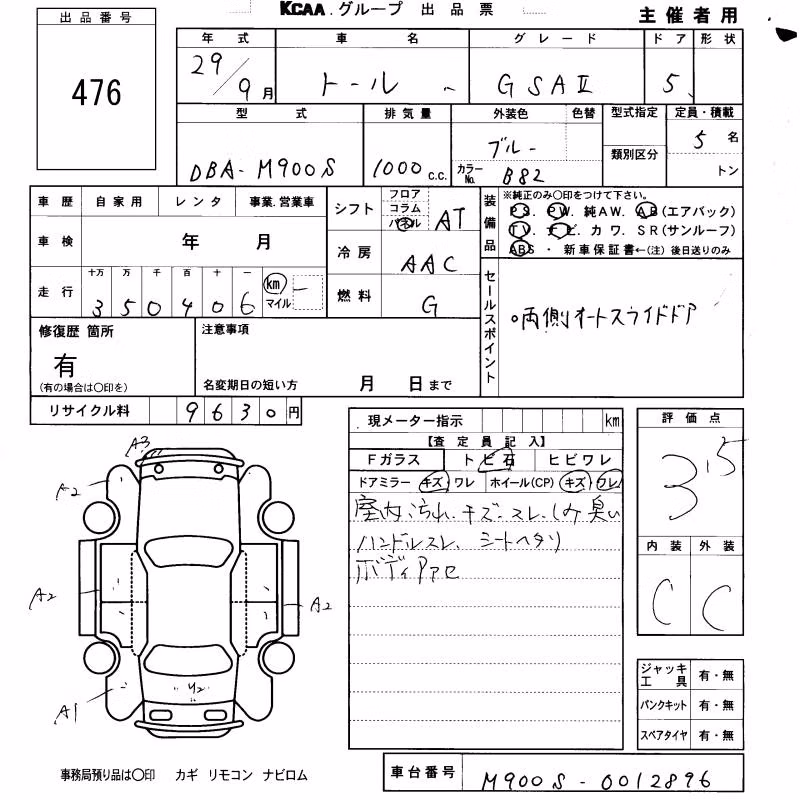 KCAA.グループ 出品票
主催者用
出品番号
476
年式 車名 グレード ドア 形状
29/9月 トール GSAII 5
型式 排気量 外装色 色替 型式指定 定員・積載
DBA-M900S 1000c.c. ブルー 5名
カラーNo. B82 類別区分 トン
車歴 自家用 レンタ 事業.営業車
車検 年 月
走行 十万 万 千 百 十 一
350406 km マイル
シフト フロア コラム パネル AT
冷房 AAC
燃料 G
装備品
※純正のみ〇印をつけて下さい。
PS. PW. 純AW. AB(エアバック)
TV. ナビ. カワ. SR(サンルーフ)
ABS ・ 新車保証書←(注) 後日送りのみ
セールスポイント
○両側オートスライドドア
修復歴 箇所
有
(有の場合は〇印を)
注意事項
名変期日の短い方 月 日まで
リサイクル料 9630円
現メーター指示 km
【査定員記入】
Fガラス トビ石 ヒビワレ
ドアミラー キズ ワレ ホイール(CP) キズ ワレ
室内汚れ.キズ.スレ.しみ臭い
ハンドルスレ、シートヘタリ
ボディ
評価点
3.5
内装 外装
C C
ジャッキ工具 有・無
パンクキット 有・無
スペアタイヤ 有・無
A3
A2
A2
A2
A1
事務局預り品は〇印 カギ リモコン ナビロム
車台番号 M900S-0012896